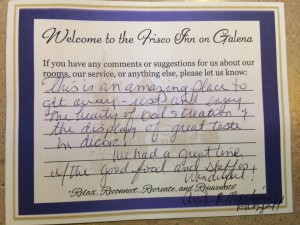 Welcome to the Frisco Inn on Galena
If you have any comments or suggestions for us about our
rooms, our service, or anything else, please let us know:
This is an amazing place to
get away - rest and enjoy
the beauty of God's creation &
the display of great taste
in decor!
We had a great time
w/ the good food and
Wonderful!
"Relax, Reconnect, Recreate, and Rejuvenate"